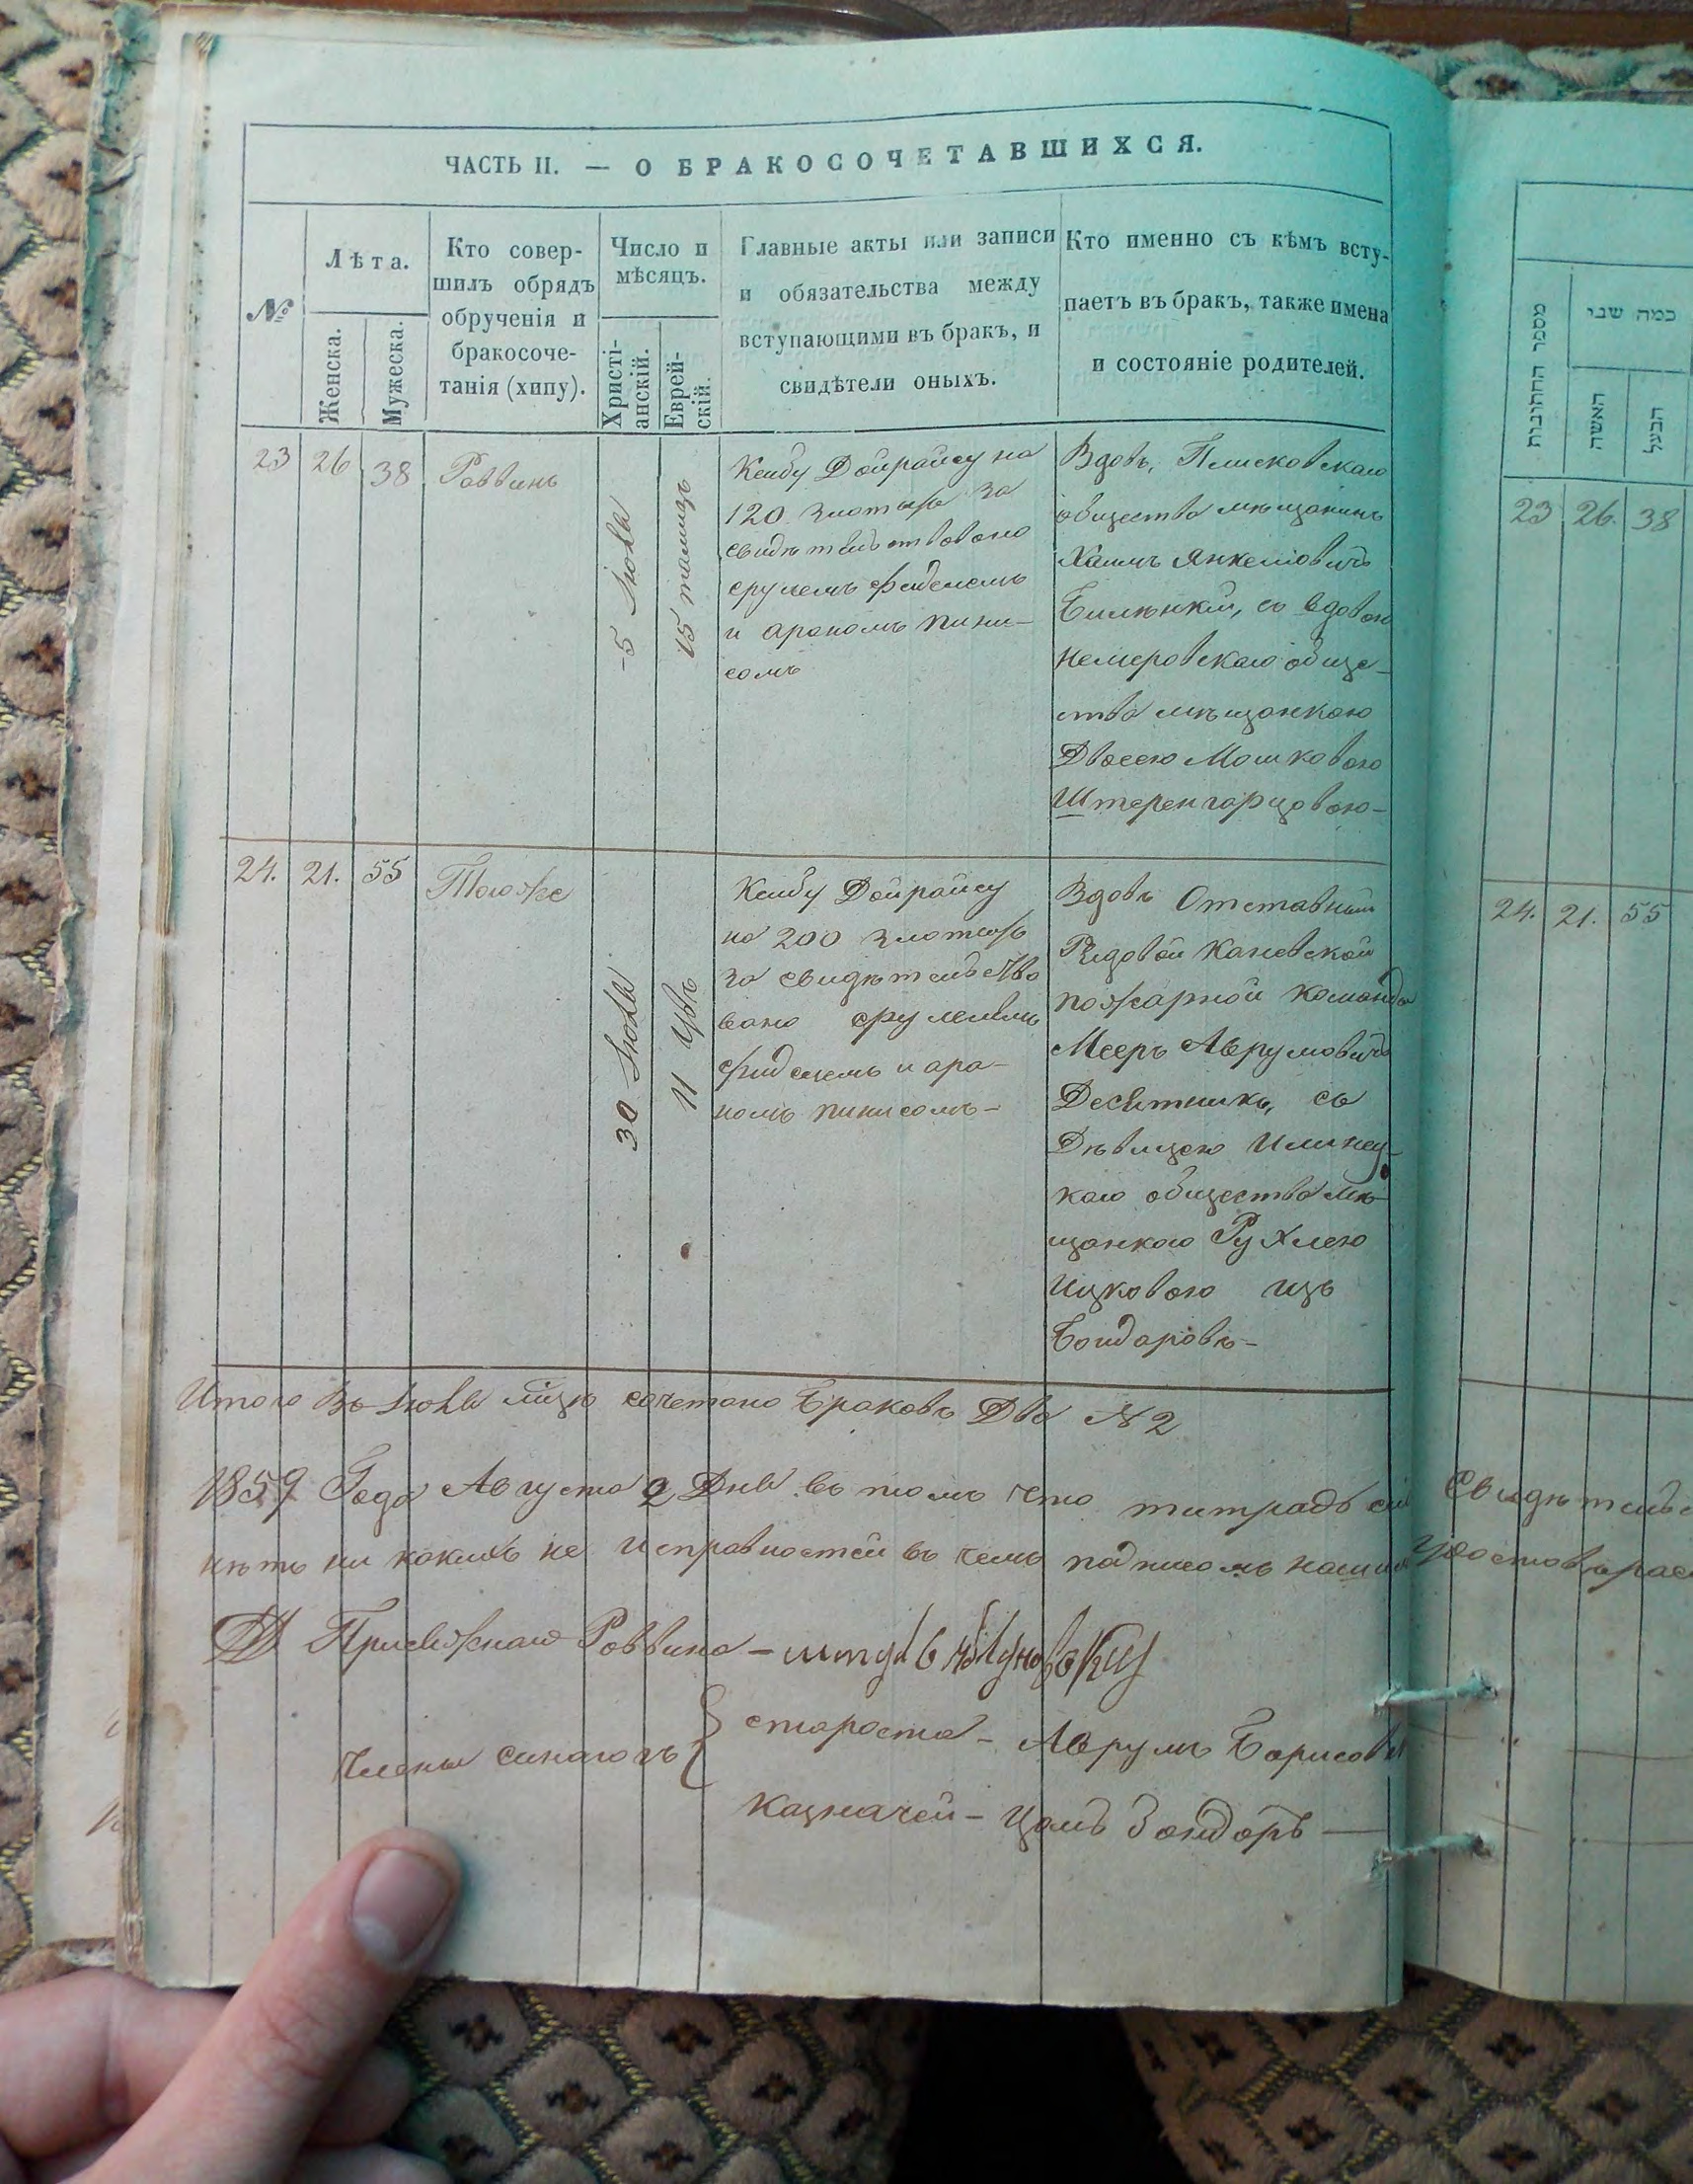 ЧАСТЬ II. — О БРАКОСОЧЕТАВШИХСЯ.
№
Лѣта.
Женска.
Мужеска.
Кто совер-
шилъ обрядъ
обрученія и
бракосоче-
танія (хипу).
Число и
мѣсяцъ.
Христі-
анскій.
Еврей-
скій.
Главные акты или записи
и обязательства между
вступающими въ бракъ, и
свидѣтели оныхъ.
Кто именно съ кѣмъ всту-
паетъ въ бракъ, также имена
и состояніе родителей.
23
26
38
Раввинъ
5 Июля
15 тамузъ
Ксибу Дойрайсу на
120 злотыхъ за
свидѣтельствовано
срулемъ
и арономъ пини-
сомъ
Вдовъ, Плисковскаго
общества мѣщанинъ
Хаимъ Янкеліовичъ
Билѣнкій, со вдовою
Немировскаго обще-
ства мѣщанкою
Двосею Мошковою
Штеренгарцовою-
24.
21.
55
Тогоже
30 Июля
11 Увъ
Ксибу Дойрайсу
на 200 злотыхъ
за свидѣтельство
вано срулемъ
и аро-
номъ пинисомъ-
Вдовъ Отставный
Рядовой Каневской
пожарной команды
Мееръ Аврумовичъ
Десятникъ, съ
Дѣвицею Илинец-
каго общества мѣ-
щанкою Рухлею
Ицковою изъ
Бондаровъ-
Итого въ Июля мцѣ сочетано Браковъ Два № 2
1859 Года Августа 2 Дня въ томъ что титрадѣ сей
нѣтъ ни какихъ не исправностей въ чемъ подписомъ нашимъ
Присяжнаго Раввина -
Члены синагогъ
староста - Аврумъ Борисов
Казначей -
מספר החתונות
כמה שני
האשה
הבעל
23
26.
38
24.
21.
55